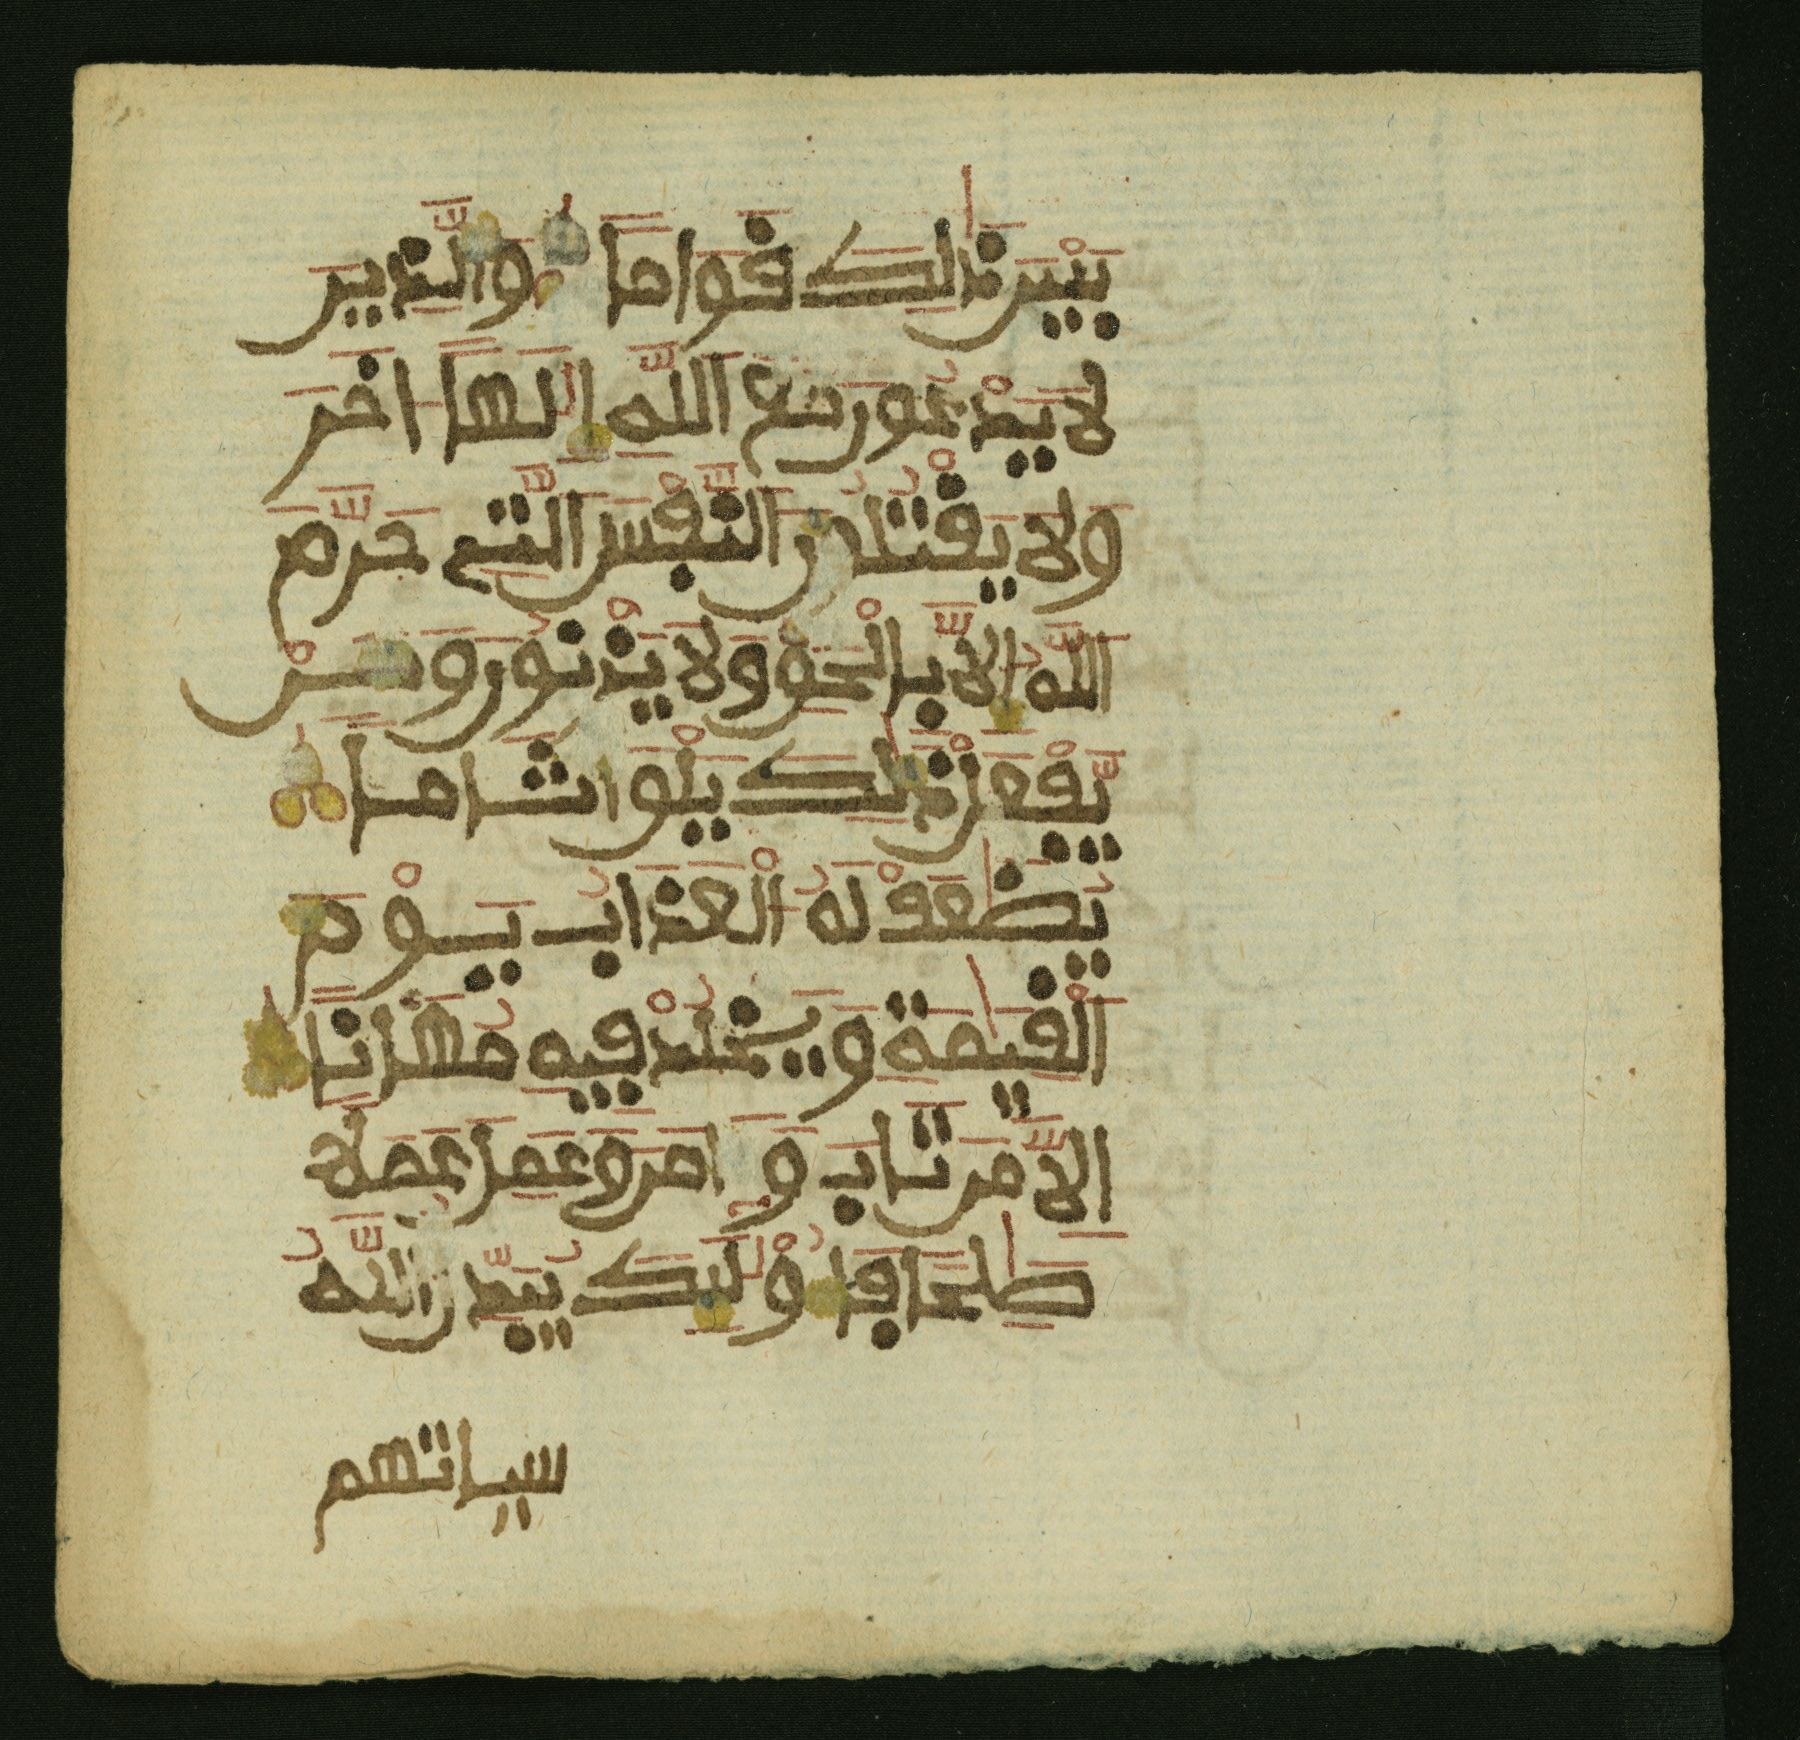 بَيْنَ ذَٰلِكَ قَوَامًا وَالَّذِينَ
لَا يَدْعُونَ مَعَ اللَّهِ إِلَٰهًا اخَرَ
وَلَا يَقْتُلُونَ النَّفْسَ الَّتِے حَرَّمَ
اللَّهُ إِلَّا بِالْحَقِّ وَلَا يَزْنُونَ وَمَنْ
يَّفْعَلْ ذَٰلِكَ يَلْقَ اثَامًا
يُضَٰعَفْ لَهُ الْعَذَابُ يَوْمَ
الْقِيَٰمَةِ وَيَخْلُدْ فِيهِ مُهَانًا
إِلَّا مَن تَابَ وَءَامَنَ وَعَمِلَ عَمَلًا
صَٰلِحًا فَأُوْلَٰئِكَ يُبَدِّلُ اللَّهُ
سياتهم